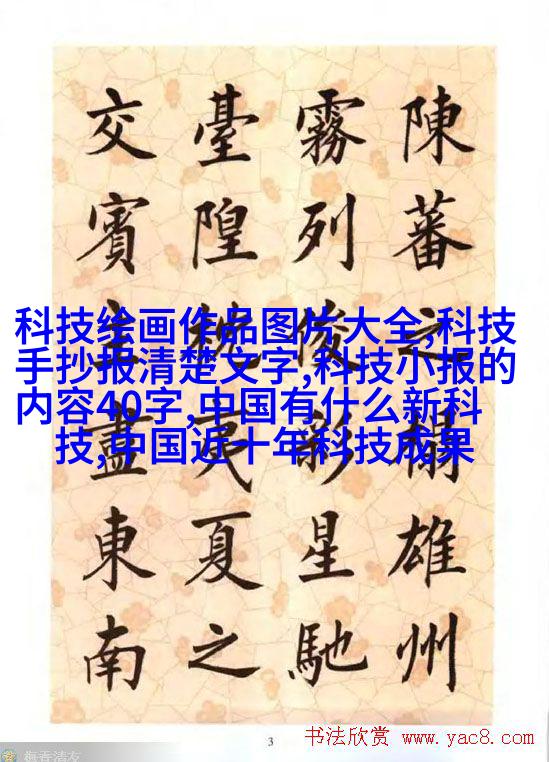 陳蕃之榻雄州
霧列俊彩星馳
臺隍枕夷夏之
交賓主盡東南
科技绘画作品图片大全,科技
手抄报清楚文字,科技小报的
内容40字,中国有什么新科
技,中国近十年科技成果
3
书法欣赏 www.yac8.com